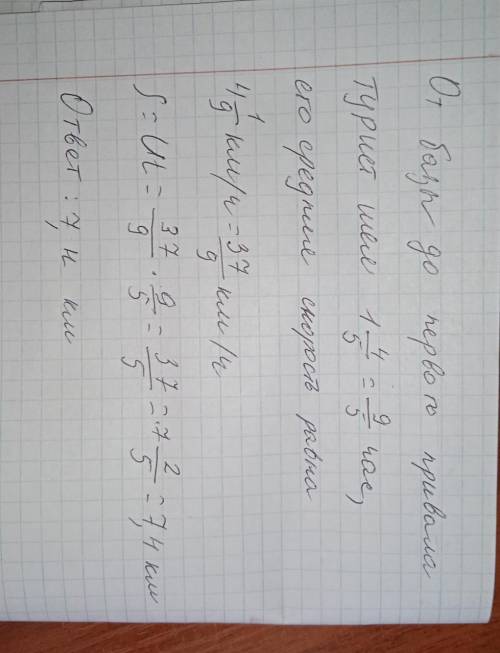 От базы до первого привала
турист шел 1 4/5 = 9/5 час,
его средние скорость равна
4 1/9 км/ч = 37/9 км/ч
S = Ut = 37/9 · 9/5 = 37/5 = 7 2/5 = 7,4 км
Ответ: 7,4 км